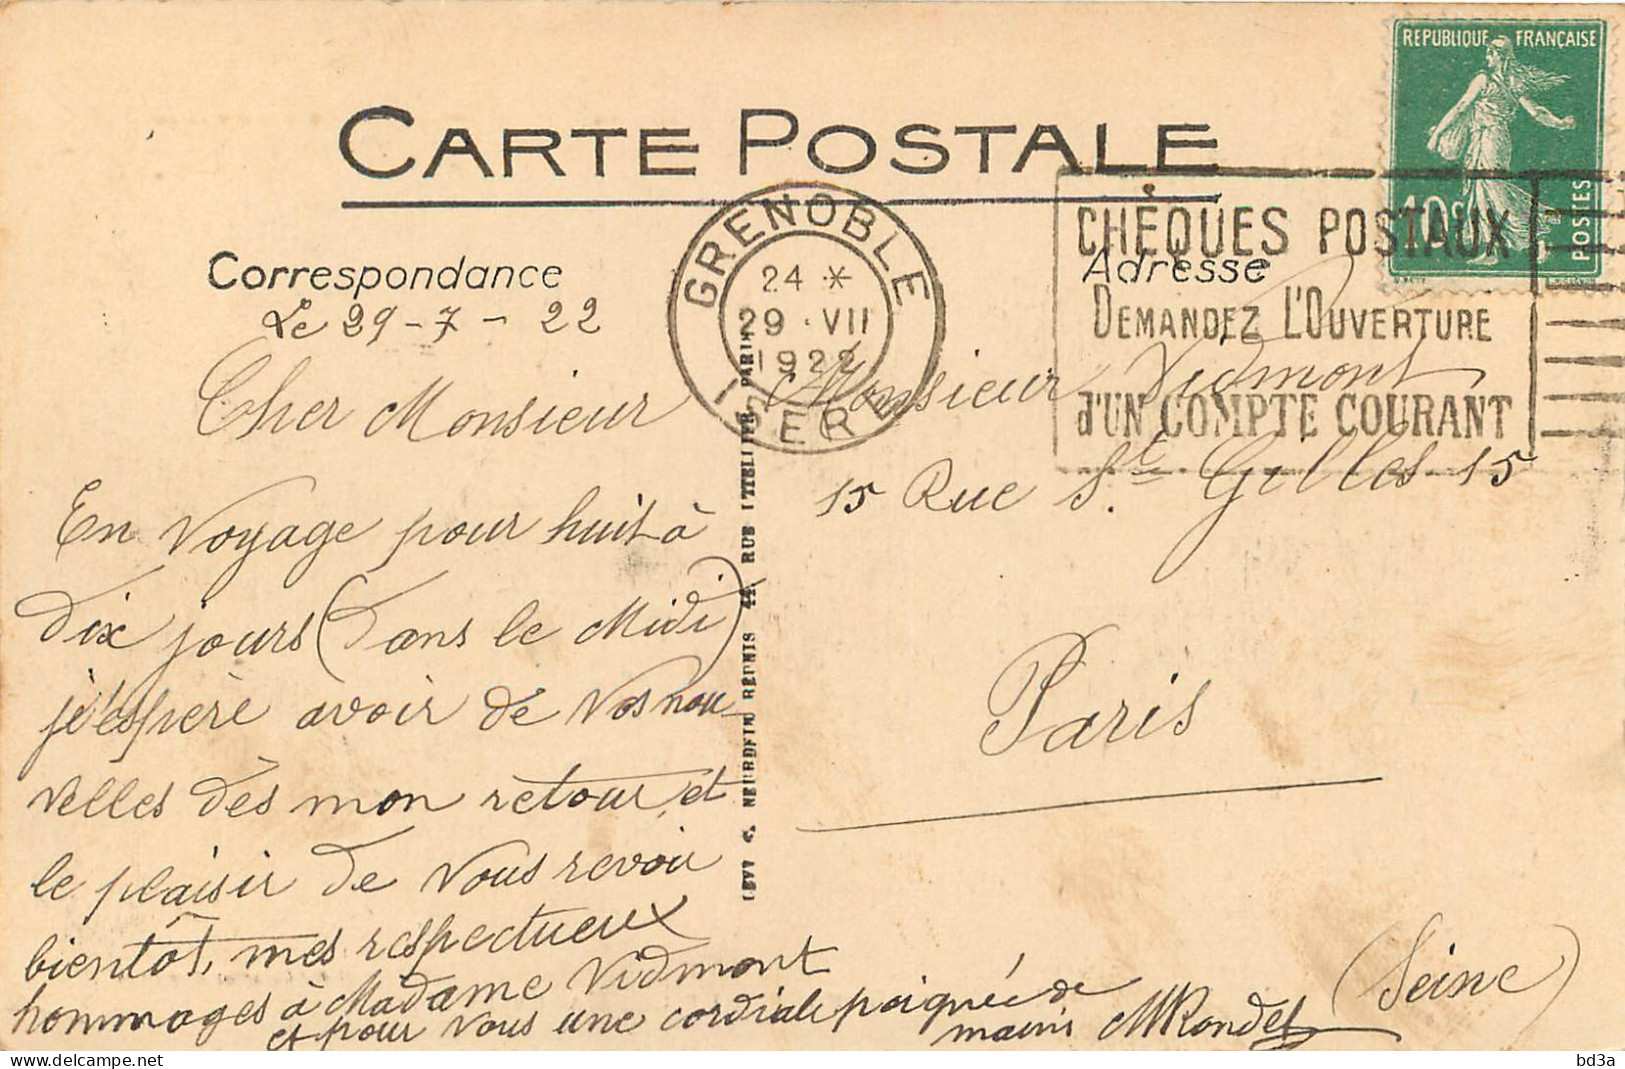 REPUBLIQUE FRANÇAISE
10c
POSTES
CARTE POSTALE
GRENOBLE
24 *
29 · VII
1922
ISERE
CHÈQUES POSTAUX
DEMANDEZ L'OUVERTURE
d'UN COMPTE COURANT
Correspondance
Adresse
Le 29-7-22
Cher Monsieur
En voyage pour huit à
dix jours (dans le Midi)
j'espère avoir de vos nou-
velles dès mon retour, et
le plaisir de vous revoir
bientôt, mes respectueux
hommages à Madame Vidmont
et pour vous une cordiale poignée de
mains MRondet
LEVY & NEURDEIN RÉUNIS 44, RUE LETELLIER, PARIS
Monsieur Vidmont
15 Rue St. Gilles 15
Paris
(Seine)
delcampe.net
bd3a